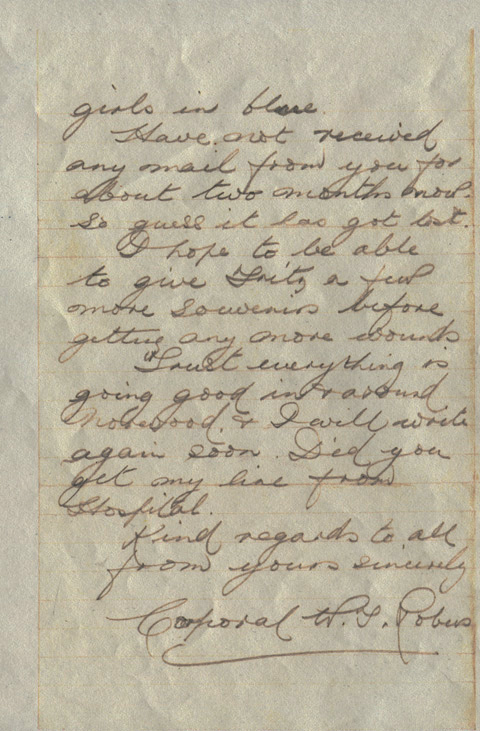 girls in blue.
Have not received
any mail from you for
about two months now.
So guess it has got lost.
I hope to be able
to give Fritz a few
more souvenirs before
getting any more wounds
Trust everything is
going good in & around
Norwood. & I will write
again soon. Did you
get my line from
Hospital.
Kind regards to all
from yours sincerely
Corporal W. S.